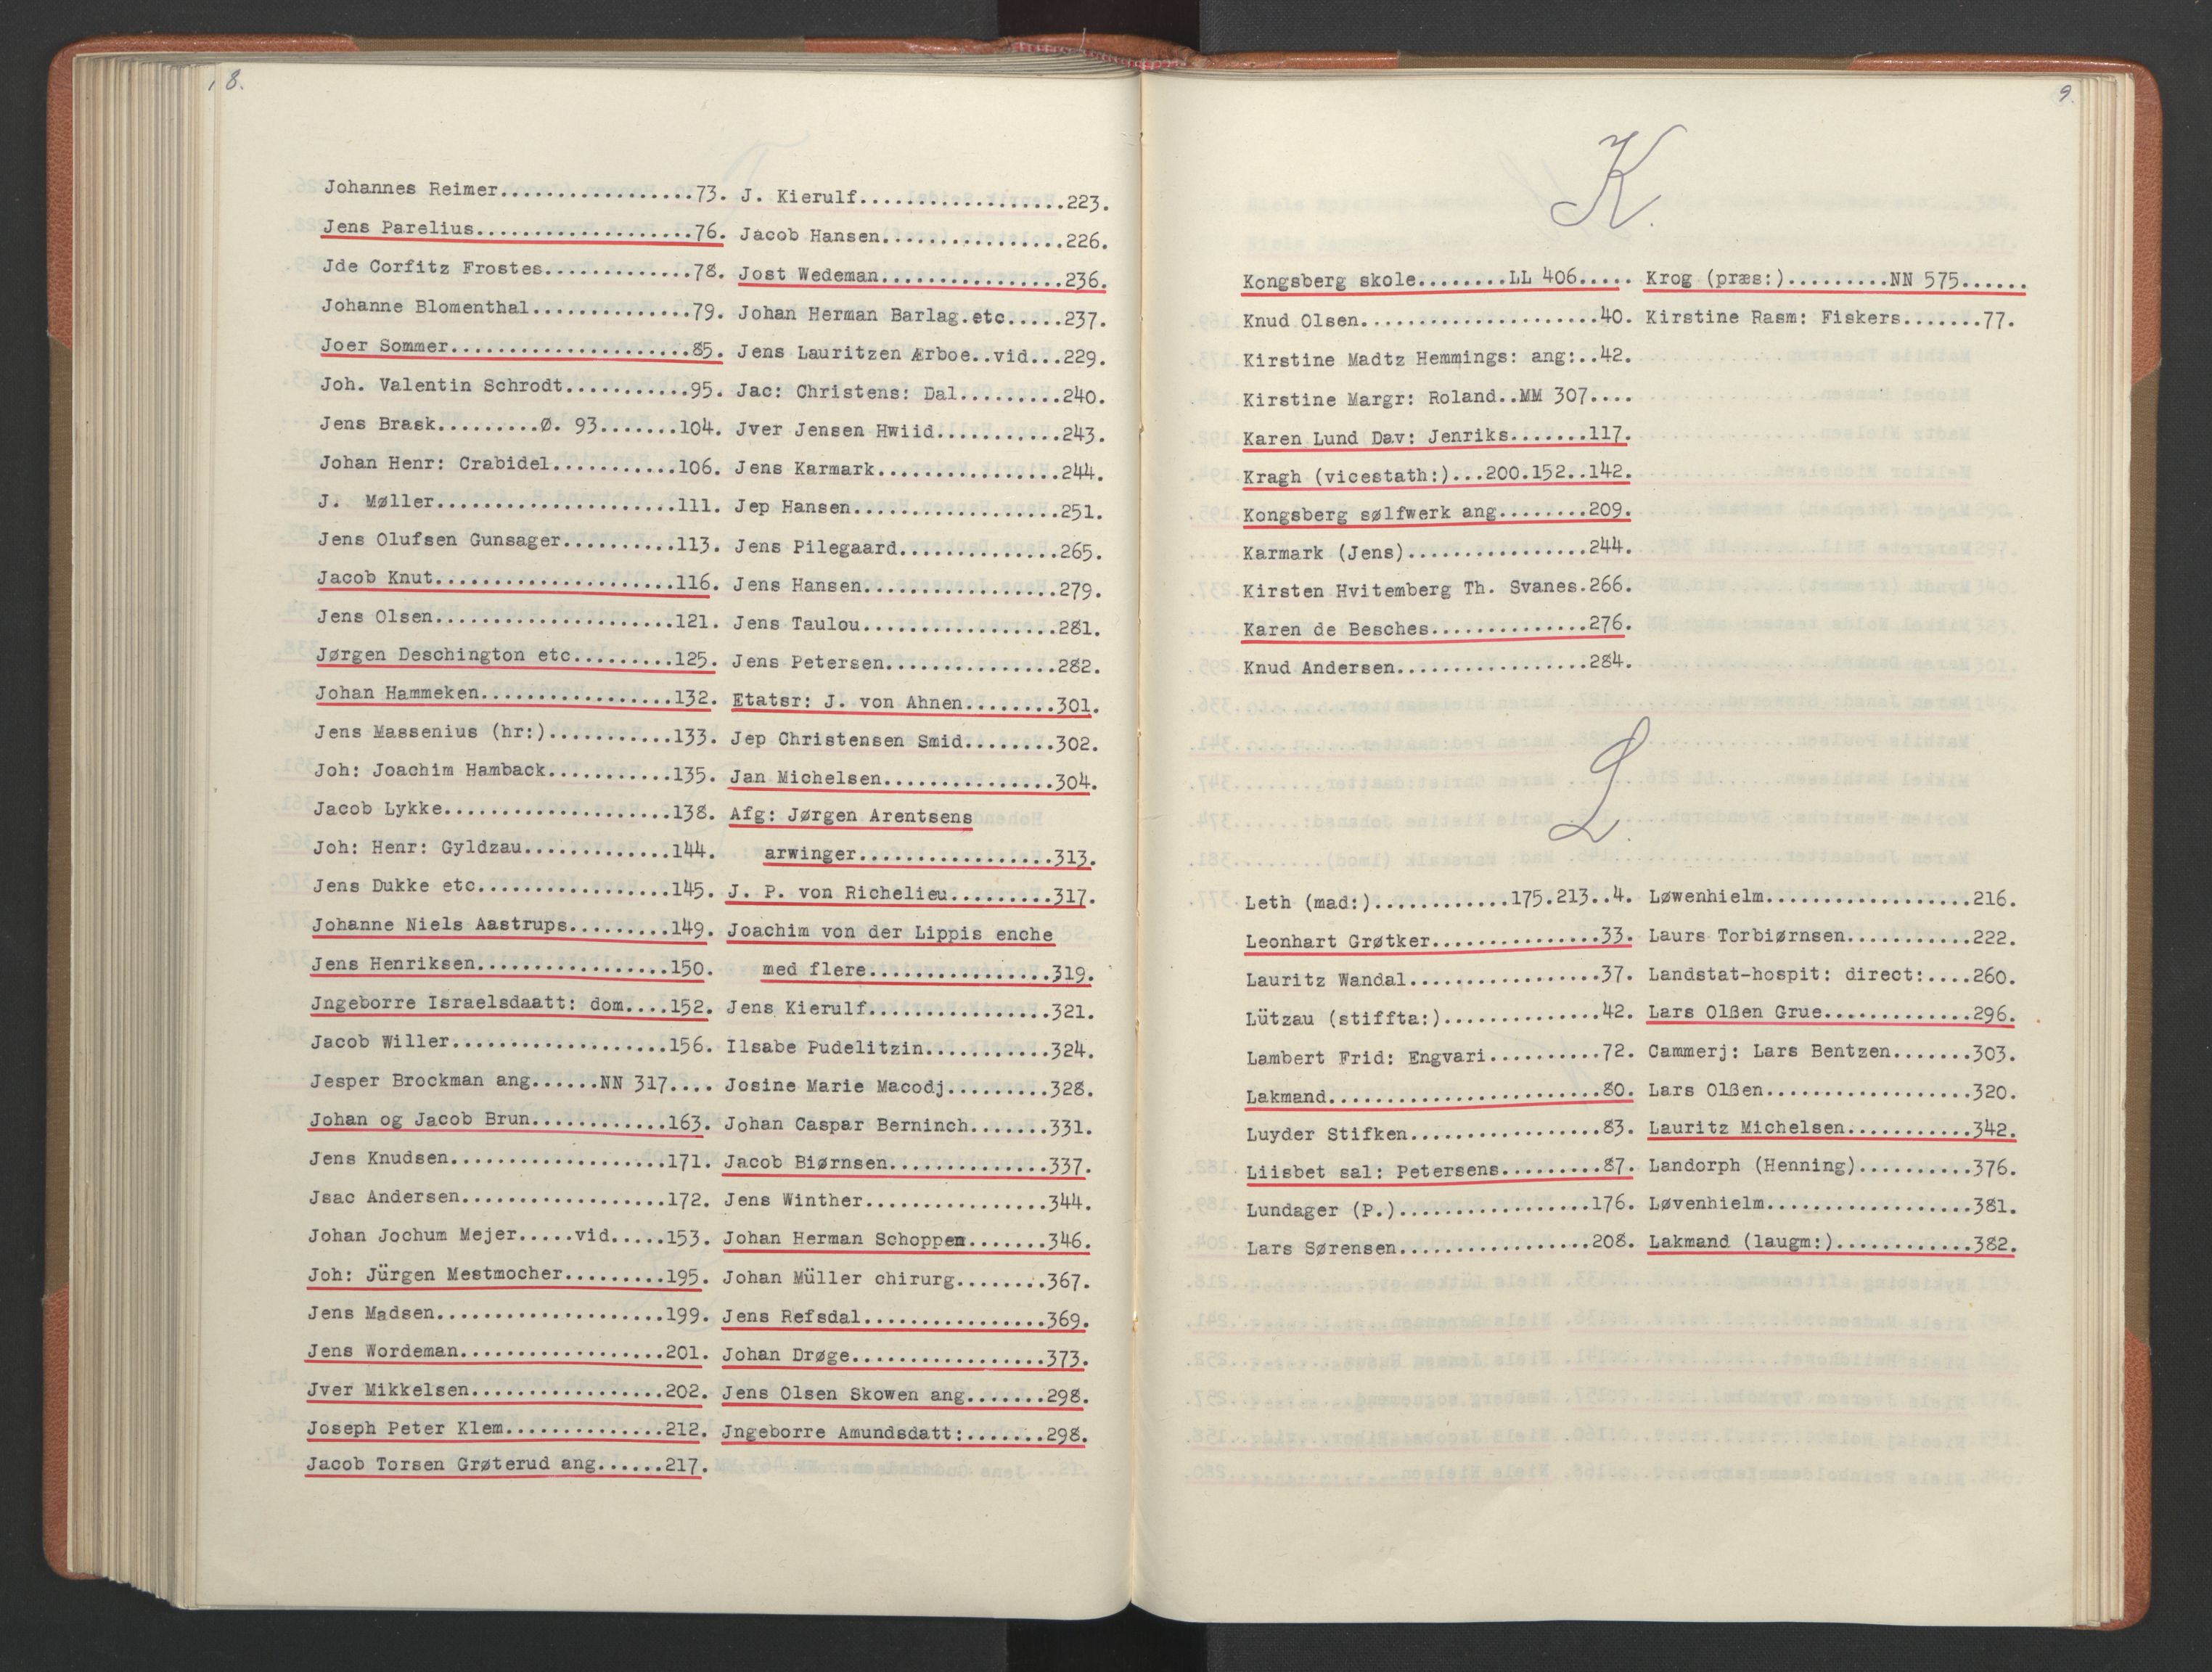 8.
Johannes Reimer..................73.
Jens Parelius....................76.
Jde Corfitz Frostes..............78.
Johanne Blomenthal...............79.
Joer Sommer......................85.
Joh. Valentin Schrodt............95.
Jens Brask.........Ø. 93.......104.
Johan Henr: Crabidel...........106.
J. Møller......................111.
Jens Olufsen Gunsager..........113.
Jacob Knut.....................116.
Jens Olsen.....................121.
Jørgen Deschington etc.........125.
Johan Hammeken.................132.
Jens Massenius (hr:)...........133.
Joh: Joachim Hamback...........135.
Jacob Lykke....................138.
Joh: Henr: Gyldzau.............144.
Jens Dukke etc.................145.
Johanne Niels Aastrups.........149.
Jens Henriksen.................150.
Jngeborre Israelsdaatt: dom....152.
Jacob Willer...................156.
Jesper Brockman ang......NN 317....
Johan og Jacob Brun............163.
Jens Knudsen...................171.
Jsac Andersen..................172.
Johan Jochum Mejer.....vid.....153.
Joh: Jürgen Mestmocher.........195.
Jens Madsen....................199.
Jens Wordeman..................201.
Jver Mikkelsen.................202.
Joseph Peter Klem..............212.
Jacob Torsen Grøterud ang......217.
J. Kierulf..................223.
Jacob Hansen................226.
Jost Wedeman................236.
Johan Herman Barlag.etc.....237.
Jens Lauritzen Ærboe..vid...229.
Jac: Christens: Dal.........240.
Jver Jensen Hwiid...........243.
Jens Karmark................244.
Jep Hansen..................251.
Jens Pilegaard..............265.
Jens Hansen.................279.
Jens Taulou.................281.
Jens Petersen...............282.
Etatsr: J. von Ahnen........301.
Jep Christensen Smid........302.
Jan Michelsen...............304.
Afg: Jørgen Arentsens
arwinger.................313.
J. P. von Richelieu.........317.
Joachim von der Lippis enche
med flere................319.
Jens Kierulf................321.
Ilsabe Pudelitzin...........324.
Josine Marie Macodj.........328.
Johan Caspar Berninch.......331.
Jacob Biørnsen..............337.
Jens Winther................344.
Johan Herman Schoppen.......346.
Johan Müller chirurg........367.
Jens Refsdal................369.
Johan Drøge.................373.
Jens Olsen Skowen ang.......298.
Jngeborre Amundsdatt:.......298.
9.
K.
Kongsberg skole........LL 406.....
Knud Olsen.....................40.
Kirstine Madtz Hemmings: ang:..42.
Kirstine Margr: Roland..MM 307....
Karen Lund Dav: Jenriks.......117.
Kragh (vicestath:)...200.152..142.
Kongsberg sølfwerk ang........209.
Karmark (Jens)................244.
Kirsten Hvitemberg Th. Svanes.266.
Karen de Besches..............276.
Knud Andersen.................284.
Krog (præs:).........NN 575......
Kirstine Rasm: Fiskers.......77.
L.
Leth (mad:)............175.213..4.
Leonhart Grøtker...............33.
Lauritz Wandal.................37.
Lützau (stiffta:)..............42.
Lambert Frid: Engvari..........72.
Lakmand........................80.
Luyder Stifken.................83.
Liisbet sal: Petersens.........87.
Lundager (P.).................176.
Lars Sørensen.................208.
Løwenhielm..................216.
Laurs Torbiørnsen...........222.
Landstat-hospit: direct:....260.
Lars Olßen Grue.............296.
Cammerj: Lars Bentzen.......303.
Lars Olßen..................320.
Lauritz Michelsen...........342.
Landorph (Henning)..........376.
Løvenhielm..................381.
Lakmand (laugm:)............382.